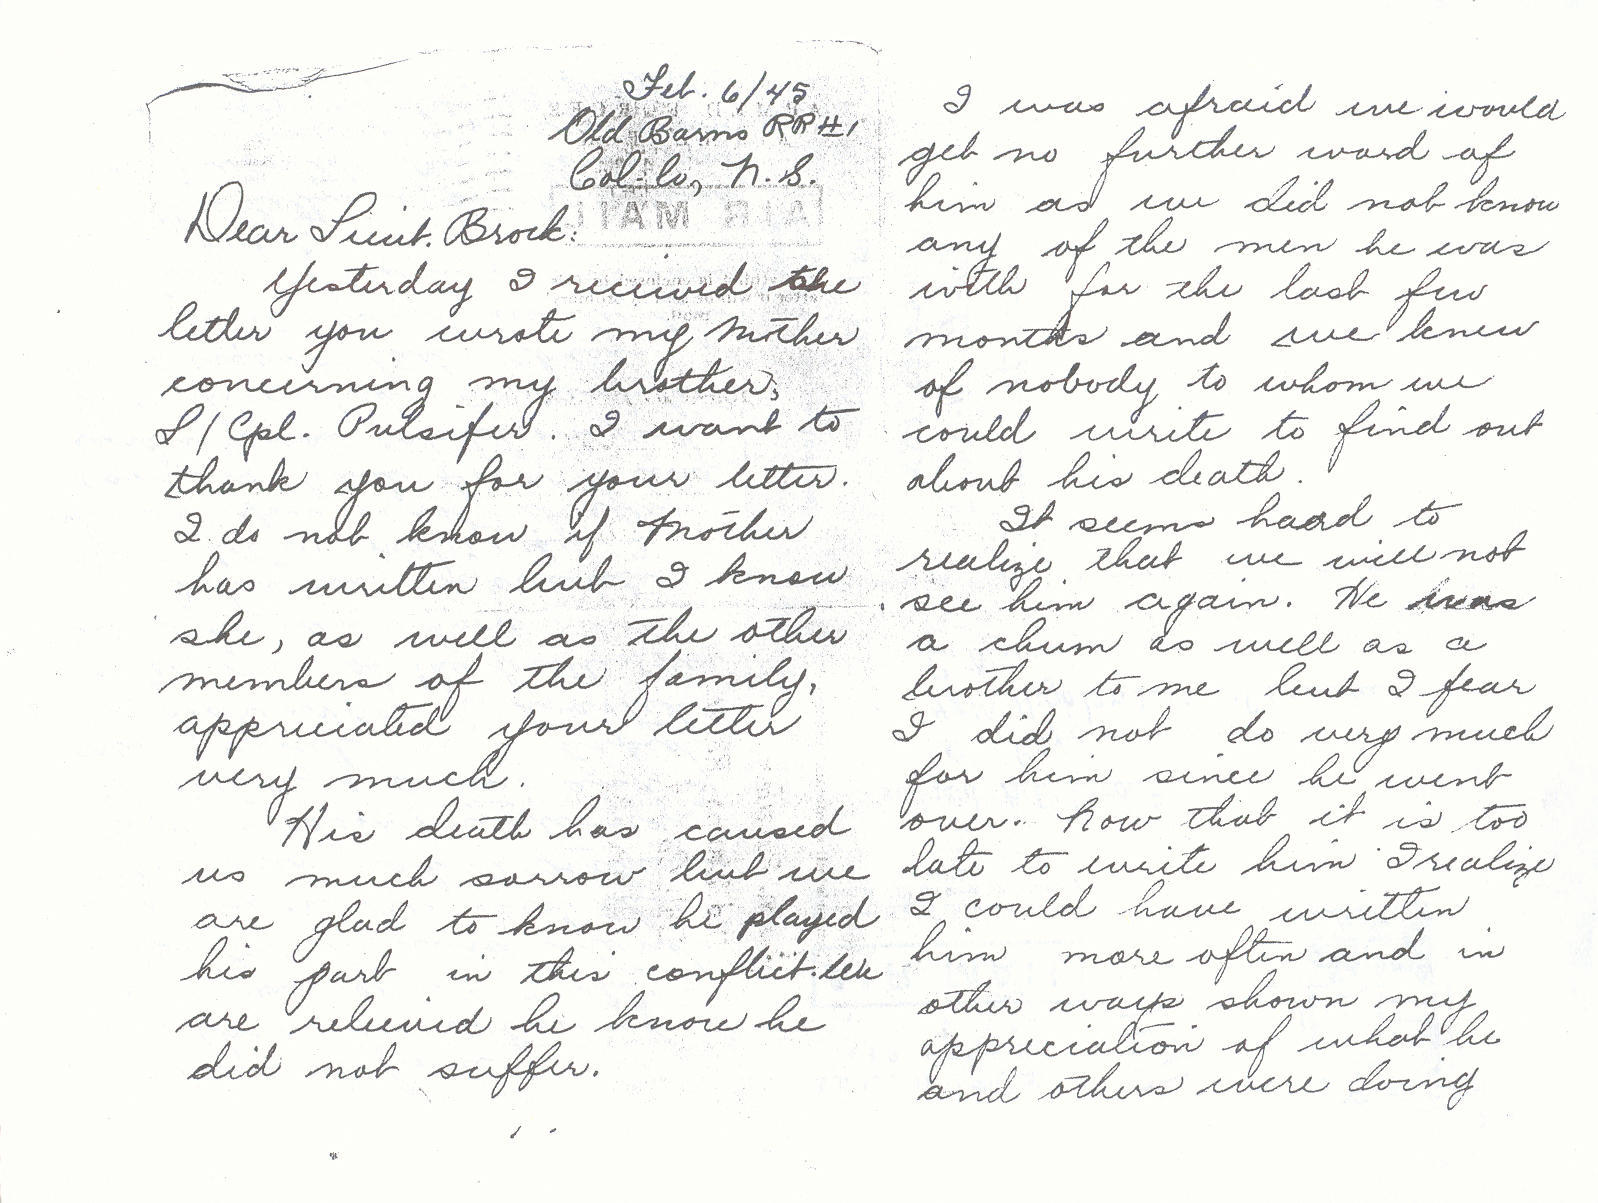 Feb. 6/45
Old Barns RR#1
Col. Co., N.S.
AIR MAIL
Dear Lieut. Brock:
Yesterday I received the
letter you wrote my Mother
concerning my brother,
L/Cpl. Pulsifer. I want to
thank you for your letter.
I do not know if Mother
has written but I know
she, as well as the other
members of the family,
appreciated your letter
very much.
His death has caused
us much sorrow but we
are glad to know he played
his part in this conflict. We
are relieved he know he
did not suffer.
I was afraid we would
get no further word of
him as we did not know
any of the men he was
with for the last few
months and we knew
of nobody to whom we
could write to find out
about his death.
It seems hard to
realize that we will not
see him again. He was
a chum as well as a
brother to me but I fear
I did not do very much
for him since he went
over. Now that it is too
late to write him I realize
I could have written
him more often and in
other ways shown my
appreciation of what he
and others were doing